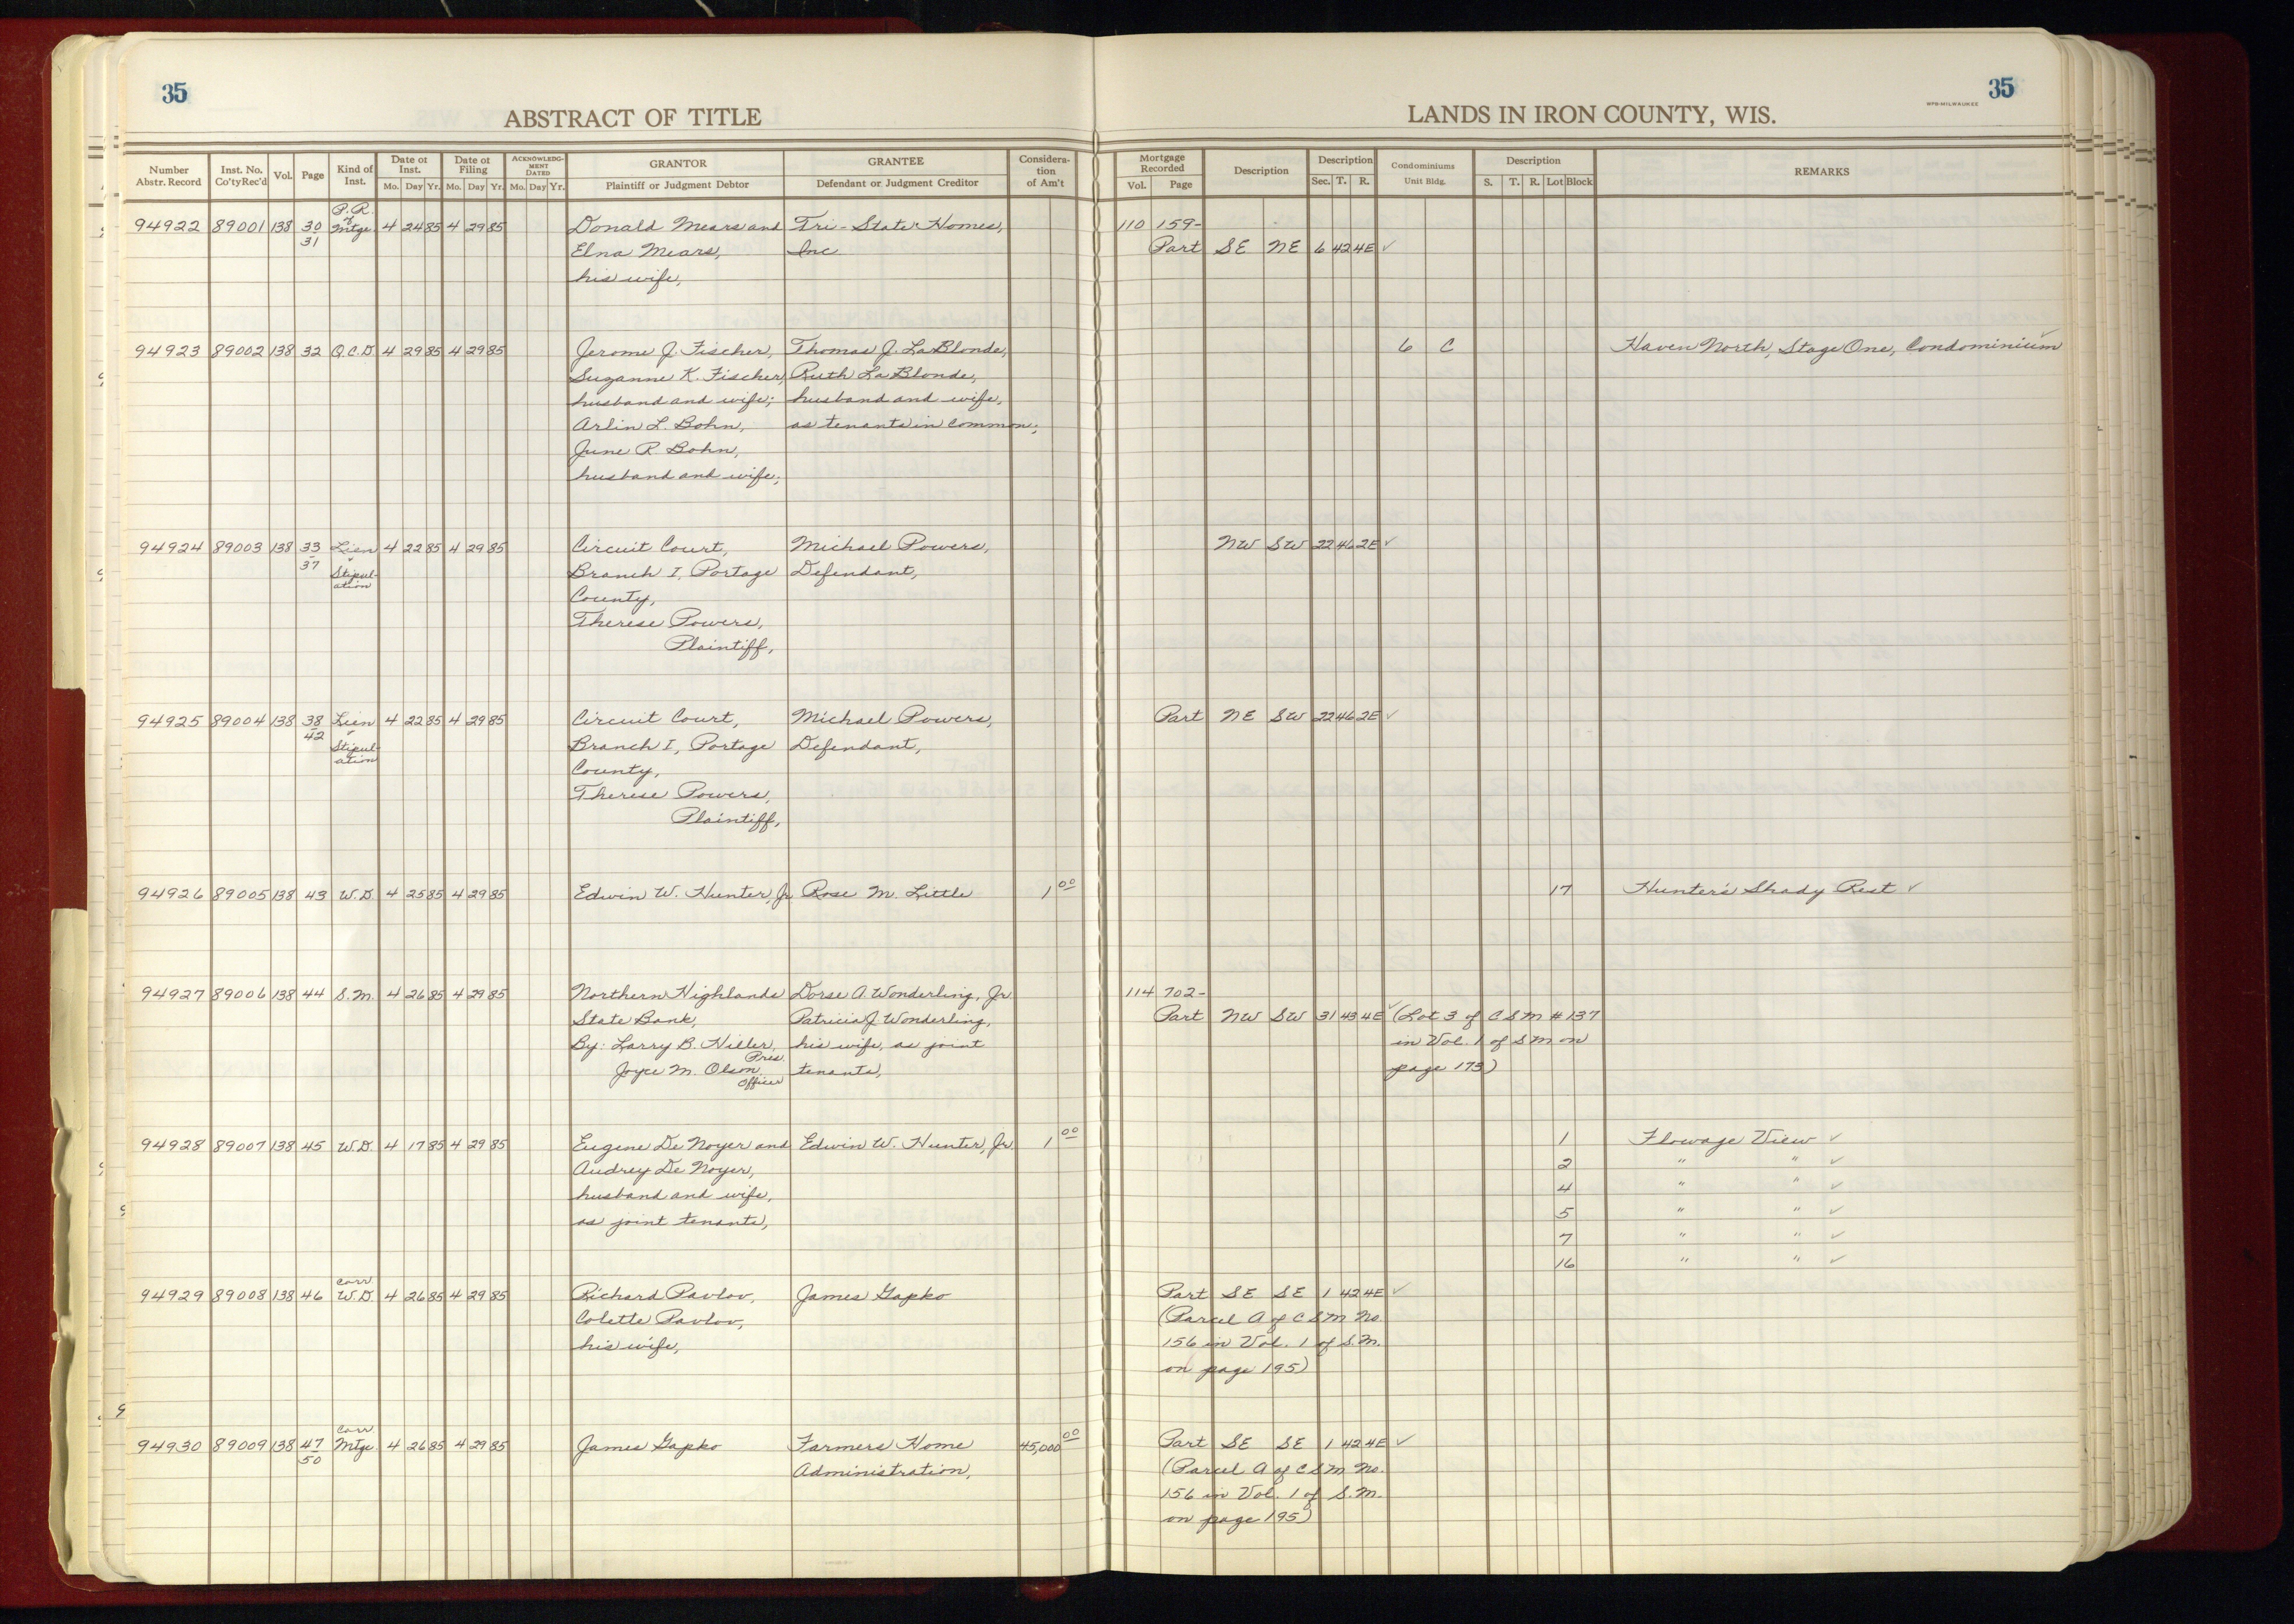 35
ABSTRACT OF TITLE
Number Abstr. Record Inst. No. Co'ty Rec'd Vol. Page Kind of Inst. Date of Inst. Mo. Day Yr. Date of Filing Mo. Day Yr. ACKNOWLEDGMENT DATED Mo. Day Yr. GRANTOR Plaintiff or Judgment Debtor GRANTEE Defendant or Judgment Creditor Considera-tion of Am't
P. R. of
94922 89001 138 30 Mtge. 4 24 85 4 29 85 Donald Mears and Tri-State Homes,
31 Elna Mears, Inc.
his wife,
94923 89002 138 32 Q.C.D. 4 29 85 4 29 85 Jerome J. Fischer, Thomas J. La Blonde,
Suzanne K. Fischer, Ruth La Blonde,
husband and wife; husband and wife,
Arlin L. Bohn, as tenants in common;
June R Bohn,
husband and wife;
94924 89003 138 33 Lien 4 22 85 4 29 85 Circuit Court, Michael Powers,
37 Stipul- Branch I, Portage Defendant,
ation County,
Therese Powers,
Plaintiff,
94925 89004 138 38 Lien 4 22 85 4 29 85 Circuit Court, Michael Powers,
42 Stipul- Branch I, Portage Defendant,
ation County,
Therese Powers,
Plaintiff,
94926 89005 138 43 W.D. 4 25 85 4 29 85 Edwin W. Hunter, Jr. Rose M. Little 1 00
94927 89006 138 44 S.M. 4 26 85 4 29 85 Northern Highlands Dorse A. Wonderling, Jr.
State Bank, Patricia J. Wonderling,
By: Larry B. Hiller, Pres. his wife, as joint
Joyce M. Olson Officer tenants,
94928 89007 138 45 W.D. 4 17 85 4 29 85 Eugene De Noyer and Edwin W. Hunter, Jr. 1 00
Audrey De Noyer,
husband and wife,
as joint tenants,
Corr
94929 89008 138 46 W.D. 4 26 85 4 29 85 Richard Pavlov, James Gapko
Colette Pavlov,
his wife,
Corr
94930 89009 138 47 Mtge 4 26 85 4 29 85 James Gapko Farmers Home 45,000 00
50 Administration,
35
WPB-MILWAUKEE
LANDS IN IRON COUNTY, WIS.
Mortgage Recorded Vol. Page Description Description Sec. T. R. Condominiums Unit Bldg. Description S. T. R. Lot Block REMARKS
110 159-
Part SE NE 6 42 4E ✓
6 C Haven North, Stage One, Condominium ✓
NW SW 22 46 2E ✓
Part NE SW 22 46 2E ✓
17 Hunter's Shady Rest ✓
114 702-
Part NW SW 31 43 4E ✓ (Lot 3 of CSM #137
in Vol. 1 of SM on
page 173)
1 Flowage View ✓
2 " " ✓
4 " " ✓
5 " " ✓
7 " " ✓
16 " " ✓
Part SE SE 1 42 4E ✓
(Parcel A of CSM No.
156 in Vol. 1 of S.M.
on page 195)
Part SE SE 1 42 4E ✓
(Parcel A of CSM No.
156 in Vol. 1 of S.M.
on page 195)